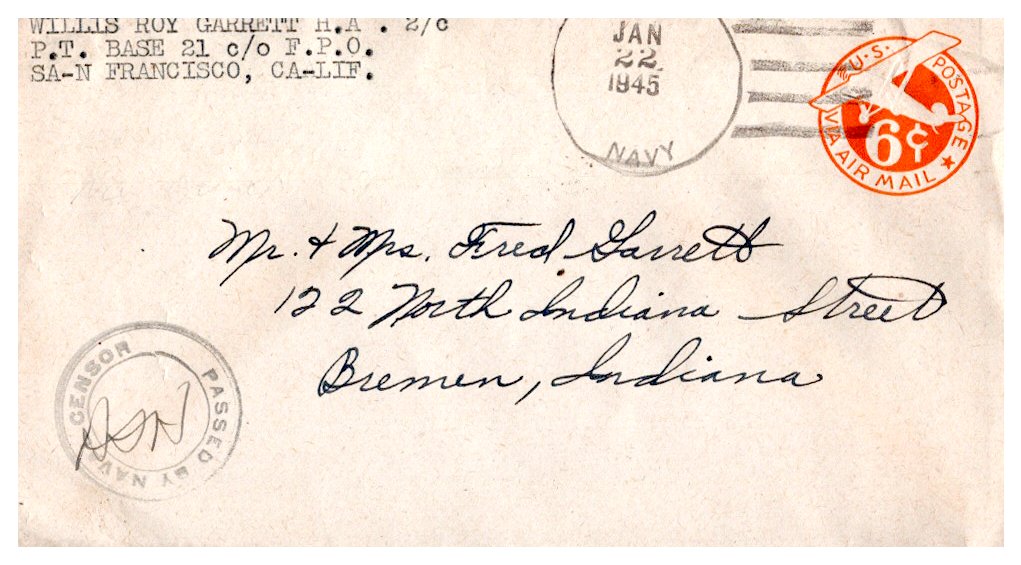 WILLIS ROY GARRETT H.A . 2/c
P.T. BASE 21 c/o F.P.O.
SA-N FRANCISCO, CA-LIF.
JAN
22
1945
NAVY
U.S. POSTAGE
6¢
VIA AIR MAIL
Mr. & Mrs. Fred Garrett
122 North Indiana Street
Bremen, Indiana
PASSED BY NAVAL CENSOR